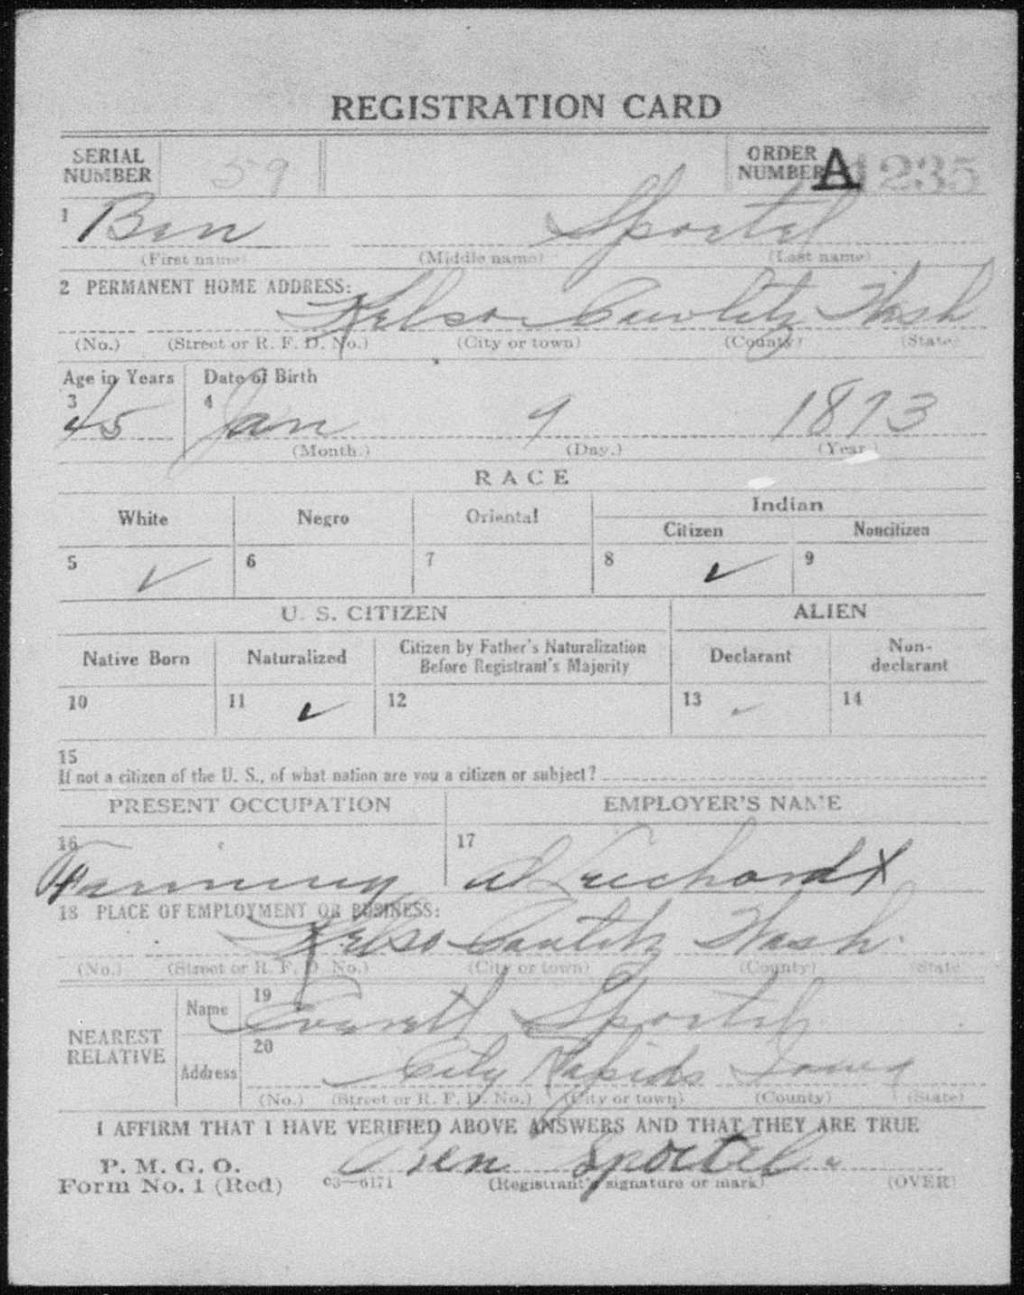 REGISTRATION CARD
SERIAL NUMBER 59 ORDER NUMBER A1235
1 Ben Sportel
(First name) (Middle name) (Last name)
2 PERMANENT HOME ADDRESS:
Kelso Cowlitz Wash
(No.) (Street or R. F. D. No.) (City or town) (County) (State)
Age in Years Date of Birth
3 45 4 Jan 9 1873
(Month.) (Day.) (Year.)
RACE
White Negro Oriental Indian
Citizen Noncitizen
5 ✓ 6 7 8 ✓ 9
U. S. CITIZEN ALIEN
Native Born Naturalized Citizen by Father's Naturalization Before Registrant's Majority Declarant Non-declarant
10 11 ✓ 12 13 ✓ 14
15
If not a citizen of the U. S., of what nation are you a citizen or subject?
PRESENT OCCUPATION EMPLOYER'S NAME
16 Farming 17
18 PLACE OF EMPLOYMENT OR BUSINESS:
Kelso Wash.
(No.) (Street or R. F. D. No.) (City or town) (County) (State)
NEAREST RELATIVE
Name 19 Everett Sportel
Address 20 City Rapids Iowa
(No.) (Street or R. F. D. No.) (City or town) (County) (State)
I AFFIRM THAT I HAVE VERIFIED ABOVE ANSWERS AND THAT THEY ARE TRUE
P. M. G. O.
Form No. 1 (Red) 03—6171 Ben Sportel
(Registrant's signature or mark) (OVER)